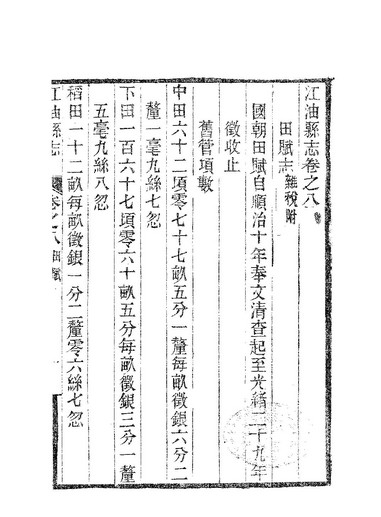 江油縣志卷之八
田賦志雜稅附
國朝田賦自順治十年奉文清查起至光緒二十九年
徵收止
舊管項數
中田六十二項零七十七畝五分一釐每畝徵銀六分二
釐一毫九絲七忽
下田一百六十七頃零六十畝五分每畝徵銀三分一釐
五毫九絲八忽
稻田一十二畝每畝徵銀一分二釐零六絲七忽
江油縣志 卷之八田賦 一